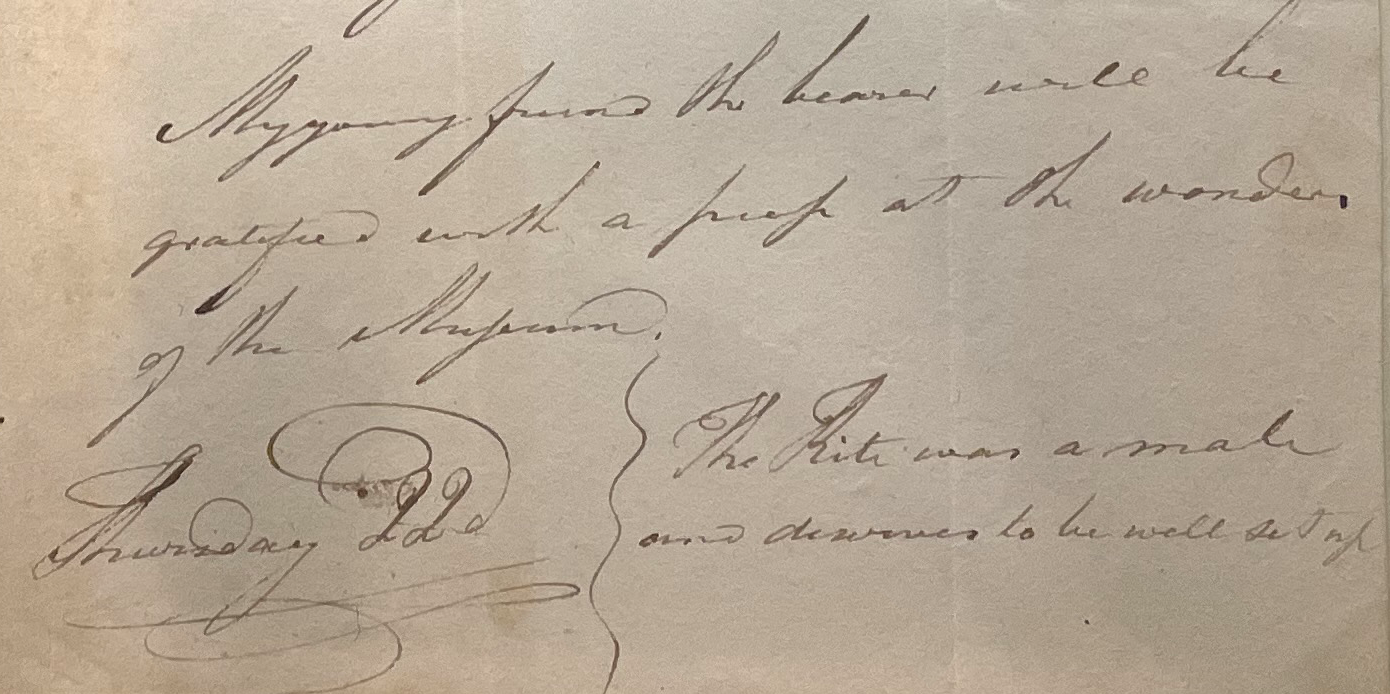 My young friend the bearer will be
gratified with a peep at the wonders
of the Museum.
Thursday 22d
The Kite was a male
and deserves to be well set up